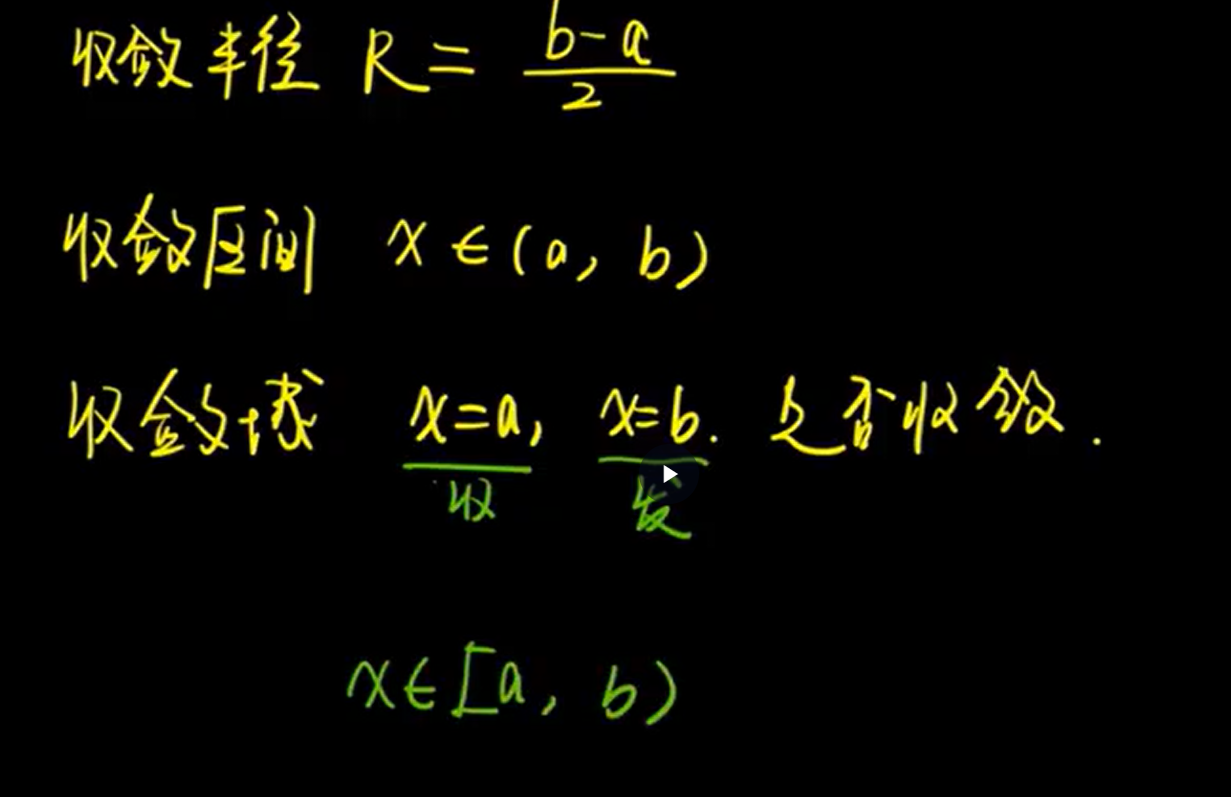 收敛半径 R = (b-a)/2
收敛区间 x ∈ (a, b)
收敛域 x=a, x=b. 是否收敛.
收 发
x∈[a, b)